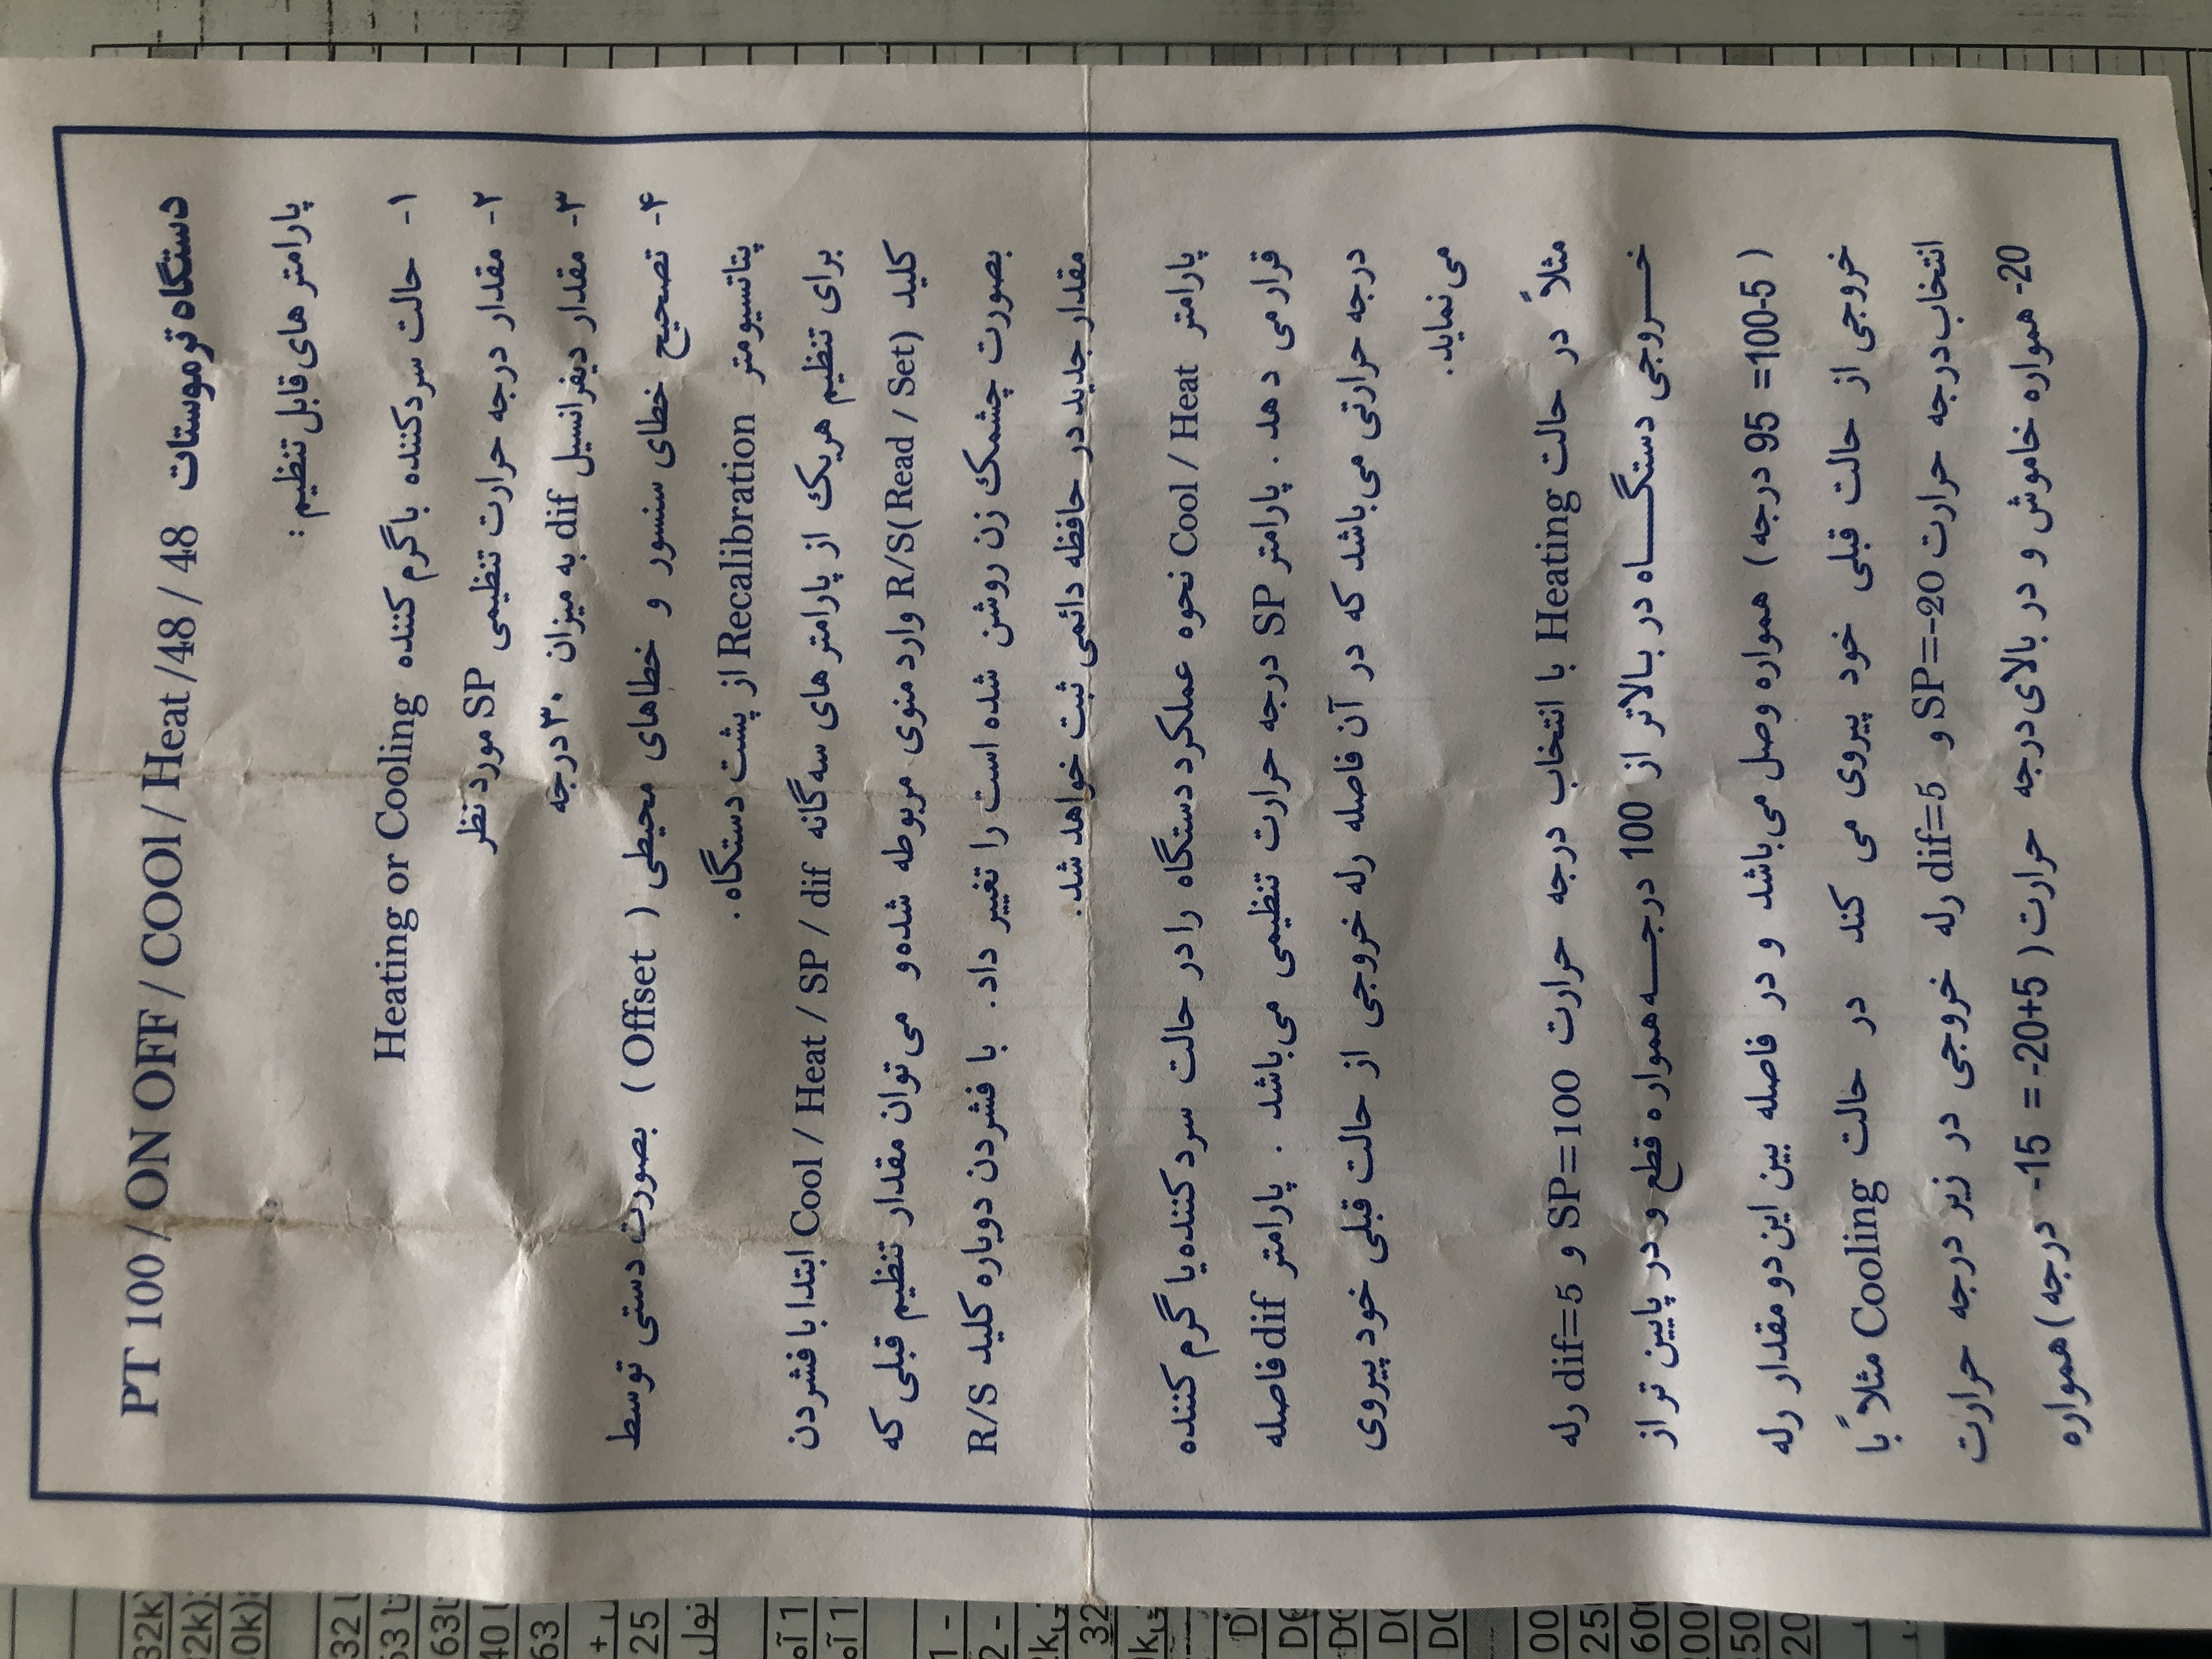 دستگاه ترموستات PT 100 / ON OFF / COOl / Heat /48 / 48
پارامتر های قابل تنظیم :
۱- حالت سردکننده یا گرم کننده Heating or Cooling
۲- مقدار درجه حرارت تنظیمی SP مورد نظر
۳- مقدار دیفرانسیل dif به میزان ۳۰درجه
۴- تصحیح خطای سنسور و خطاهای محیطی ( Offset ) بصورت دستی توسط
پتاتسیومتر Recalibration از پشت دستگاه .
برای تنظیم هریک از پارامتر های سه گانه Cool / Heat / SP / dif ابتدا با فشردن
کلید R/S( Read / Set) وارد منوی مربوطه شده و می توان مقدار تنظیم قبلی که
بصورت چشمک زن روشن شده است را تغییر داد. با فشردن دوباره کلید R/S
مقدار جدید در حافظه دائمی ثبت خواهد شد.
پارامتر Cool / Heat نحوه عملکرد دستگاه را در حالت سرد کننده یا گرم کننده
قرار می دهد . پارامتر SP درجه حرارت تنظیمی می باشد . پارامتر dif فاصله
درجه حرارتی می باشد که در آن فاصله رله خروجی از حالت قبلی خود پیروی
می نماید.
مثلاً در حالت Heating با انتخاب درجه حرارت SP=100 و dif=5 رله
خــروجی دستگــاه در بـالاتر از 100 درجــه همواره قطع و در پایین تر از
( 100-5= 95 درجه) همواره وصل می باشد و در فاصله بین این دو مقدار رله
خروجی از حالت قبلی خود پیروی می کند در حالت Cooling مثلاً با
انتخاب درجه حرارت SP=-20 و dif=5 رله خروجی در زیر درجه حرارت
-20 همواره خاموش و در بالای درجه حرارت ( -20+5 = -15 درجه) همواره
32k
32k)
0k)
32
63
63
40
63
25
نول
32
D
DC
DC
DC
DC
00
25
60
00
50
20